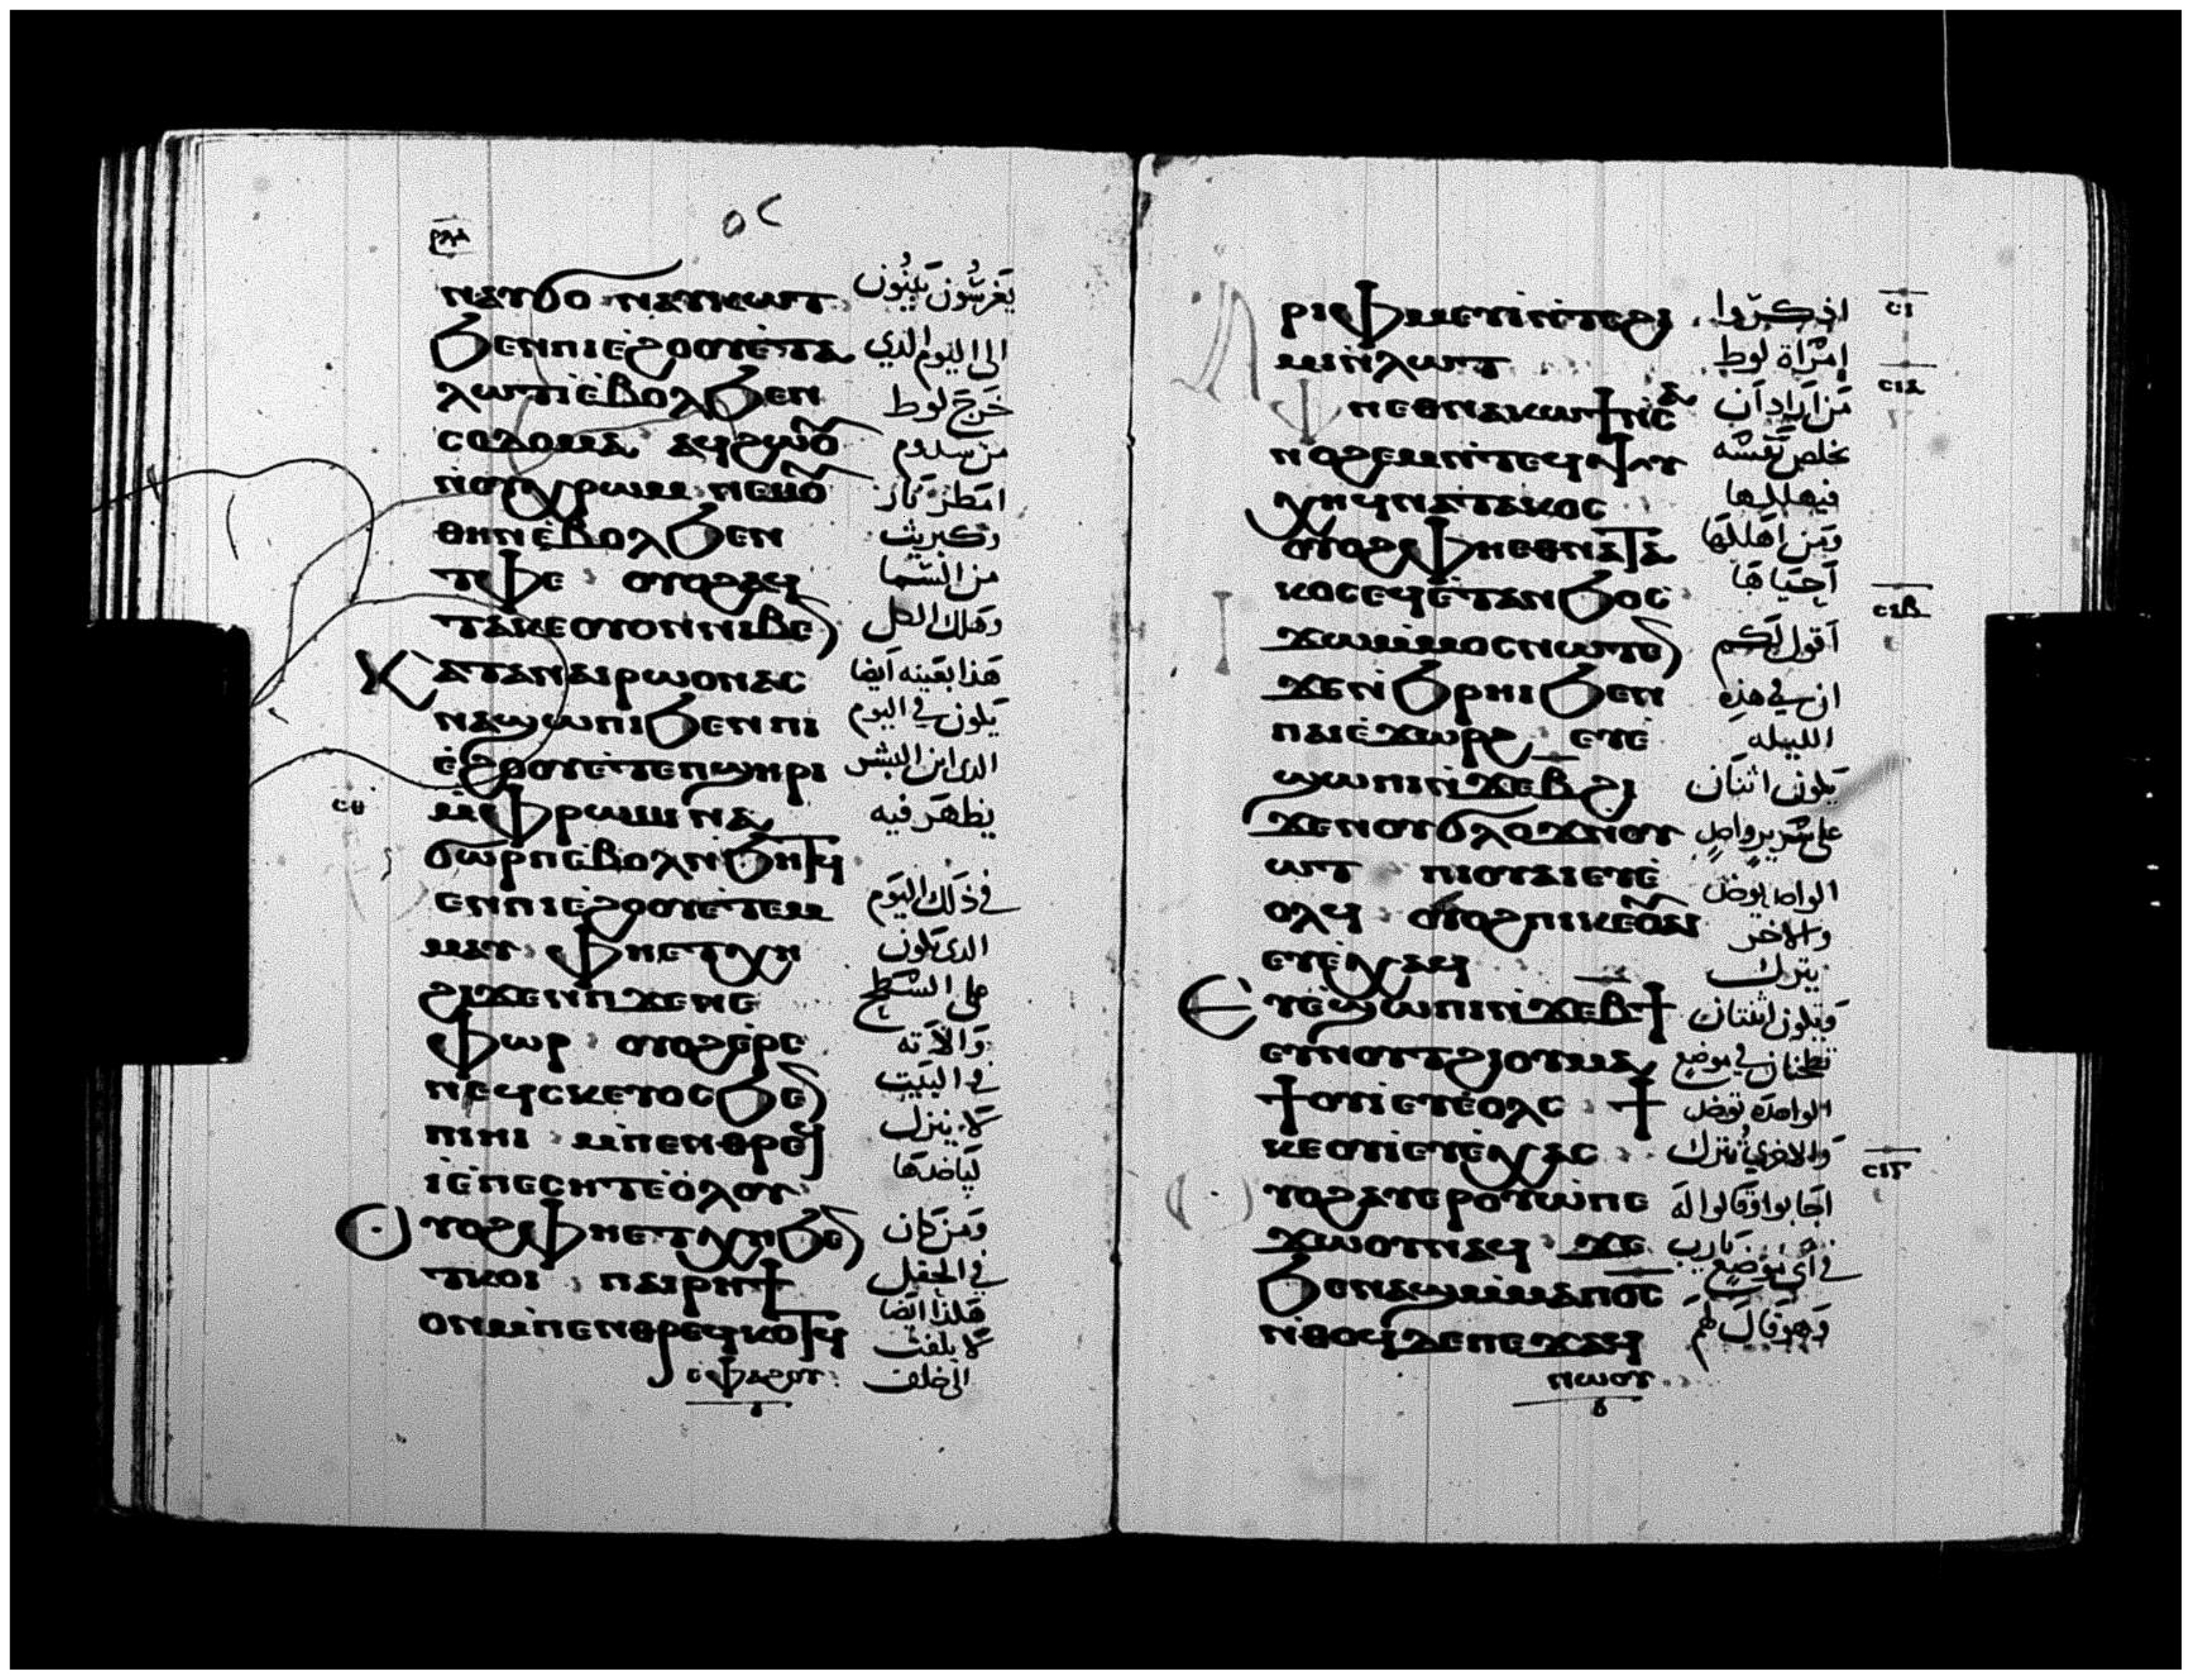 ⲣⲗⲁ
ⲛⲁⲩϭⲟ ⲛⲁⲩⲕⲱⲧ يَغرسُون يَبنُون
ϧⲉⲛⲡⲓⲉϩⲟⲟⲩⲉ̀ⲧⲁ الى اليَوم الذي
ⲗⲱⲧⲓ̀ⲉ̀ⲃⲟⲗϧⲉⲛ خَرجَ لوط
ⲥⲟⲇⲟⲙⲁ ⲁϥϩⲱⲟ̅ من سدوم
ⲛ̀ⲟⲩⲭⲣⲱⲙ ⲛⲉⲙⲟ̅ امَطرَ نَار
ⲑⲏⲛⲉ̀ⲃⲟⲗϧⲉⲛ وَكبريت
ⲧⲫⲉ ⲟⲩⲟϩⲁϥ من السَّما
ⲧⲁⲕⲉⲟⲩⲟⲛⲛⲓⲃⲉ وَهلك الكل
ⲕⲁⲧⲁⲛⲁⲓⲣⲱⲟⲛⲁⲥ هَذا بعَينه اَيضا
ⲛⲁϣⲱⲡⲓϧⲉⲛⲡⲓ يَكون في اليوم
ⲉ̀ϩⲟⲟⲩⲉ̀ⲧⲉⲡϣⲏⲣⲓ الدى ابن البشر
ⲥⲑ ⲙ̀ⲫⲣⲱⲙⲓ ⲛⲁ يَظهَر فيه
ϭⲱⲣⲡⲉ̀ⲃⲟⲗⲛ̀ϧⲏⲧϥ
ⲉⲛⲡⲓⲉ̀ϩⲟⲟⲩⲉ̀ⲧⲉⲙ في ذلك اليَوم
ⲙⲁⲩ ⲫⲏⲉⲧⲭⲏ الدى يَكون
ϩⲓϫⲉⲛⲡϫⲉⲛⲉ على السَّطح
ⲫⲱⲣ ⲟⲩⲟϩⲉ̀ⲣⲉ وَالاَته
ⲛⲉϥⲥⲕⲉⲩⲟⲥϧⲉ في البَيت
ⲡⲓⲏⲓ ⲙ̀ⲡⲉⲛⲑⲣⲉϥ لاَ ينزل
ⲓ̀ⲉ̀ⲡⲉⲥⲏⲧⲉ̀ⲟ̀ⲗⲟⲩ ليَاخدهَا
ⲟⲩⲟϩⲫⲏⲉⲧⲭⲏϧⲉ وَمَن كان
ⲧⲕⲟⲓ ⲡⲁⲓⲣⲏϯ في الحَقل
ⲟⲛⲙ̀ⲡⲉⲛⲑⲣⲉϥⲕⲟⲧϥ هَكذا ايَضا لاَ يلتفت
ⲉ̀ⲫⲁϩⲟⲩ الى خلف
ⲁⲣⲓⲫⲙⲉⲩⲓ̀ⲛ̀ⲧⲥϩⲓ اذكرُوا ⲥⲓ
ⲙⲓⲛ̀ⲗⲱⲧ اِمْرَاة لوط ⲥⲓⲁ
ⲫⲏⲉⲑⲛⲁⲕⲱϯⲛ̀ⲥⲁ مَن اَرَاد اَن
ⲛⲟϩⲉⲙⲛ̀ⲧⲉϥⲯⲩ يخلص نَفسه
ⲭⲏϥⲛⲁⲧⲁⲕⲟⲥ فيهلكها
ⲟⲩⲟϩⲫⲏⲉⲑⲛⲁⲧⲁ وَمَن اَهلكهَا
ⲕⲟⲥⲉϥⲉ̀ⲧⲁⲛϧⲟⲥ اَحيَاهَا ⲥⲓⲃ
ϯϫⲱⲙ̀ⲙⲟⲥⲛⲱⲧⲉ اَقول لكم
ϫⲉⲛ̀ϧⲣⲏⲓϧⲉⲛ ان في هذه
ⲡⲁⲓⲉ̀ϫⲱⲣϩ ⲉⲩⲉ̀ الليله
ϣⲱⲡⲓⲛ̀ϫⲉⲃ̅ϩⲓ يَكون اثنَان
ϫⲉⲛⲟⲩϭⲗⲟϫⲛ̀ⲟⲩ على سَريرٍ واحدٍ
ⲱⲧ ⲡⲓⲟⲩⲁⲓⲉⲩⲉ̀ الواحد يوخذ
ⲟⲗϥ ⲟⲩⲟϩⲡⲓⲕⲉⲟ̅ⲩⲁⲓ والاخر
ⲉⲩⲉ̀ⲭⲁϥ يترك
ⲉⲩⲉ̀ϣⲱⲡⲓⲛ̀ϫⲉⲃ̅ϯ وَتكون اثنتان
ⲉⲩⲛⲟⲩⲧϩⲓⲟⲩⲙⲁ تطحنَان في مَوضع
ϯⲟⲩⲓ̀ⲉⲩⲉ̀ⲟⲗⲥ ϯ الواحدَه توخذ
ⲕⲉⲟⲩⲓ̀ⲉⲩⲉ̀ⲭⲁⲥ وَالاخري تُترك ⲥⲓⲅ
ⲟⲩⲟϩⲁⲩⲉⲣⲟⲩⲱ̀ⲡⲉ اجَابوا وَقالوا له
ϫⲱⲟⲩⲛⲁϥ ϫⲉ يَارب
ϧⲉⲛⲁϣⲙ̀ⲙⲁⲡⲟ̅ⲥ̅ في اَي مَوضع
ⲛ̀ⲑⲟϥⲇⲉⲡⲉϫⲁϥ وَهو قَال لهم
ⲛⲱⲟⲩ